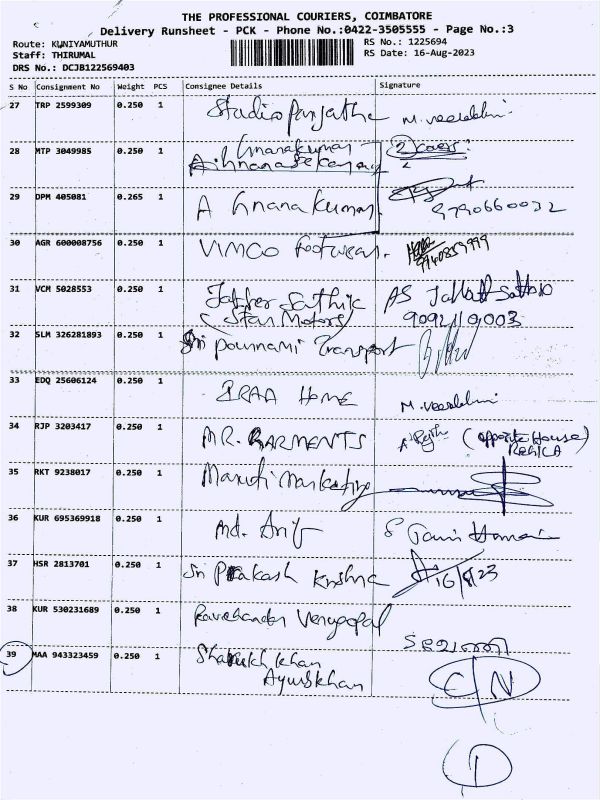 THE PROFESSIONAL COURIERS, COIMBATORE
Delivery Runsheet - PCK - Phone No.:0422-3505555 - Page No.:3
Route: KUNIYAMUTHUR RS No.: 1225694
Staff: THIRUMAL RS Date: 16-Aug-2023
DRS No.: DCJB122569403
S No Consignment No Weight PCS Consignee Details Signature
27 TRP 2599309 0.250 1 Studio Panjatha M. Veeralakshmi
28 MTP 3049985 0.250 1 Gnanakumar
2 covers
29 DPM 405081 0.265 1 A Gnanakumar
9790660032
30 AGR 600008756 0.250 1 VIMCO Footwear.
31 VCM 5028553 0.250 1 Jaffer Sathik AS
(Star Motors)
32 SLM 326281893 0.250 1 Sri Pournami Transport
33 EDQ 25606124 0.250 1 IRAA HOME M. Veeralakshmi
34 RJP 3203417 0.250 1 MR. GARMENTS (opposite House)
35 RKT 9238017 0.250 1 Maruti Marketing
36 KUR 695369918 0.250 1 Md. Arif
37 HSR 2813701 0.250 1 Sri Prakash Krishna 16/8/23
38 KUR 530231689 0.250 1 Ravichander Venugopal
39 MAA 943323459 0.250 1 Sharukh khan
Ayubkhan CN
D